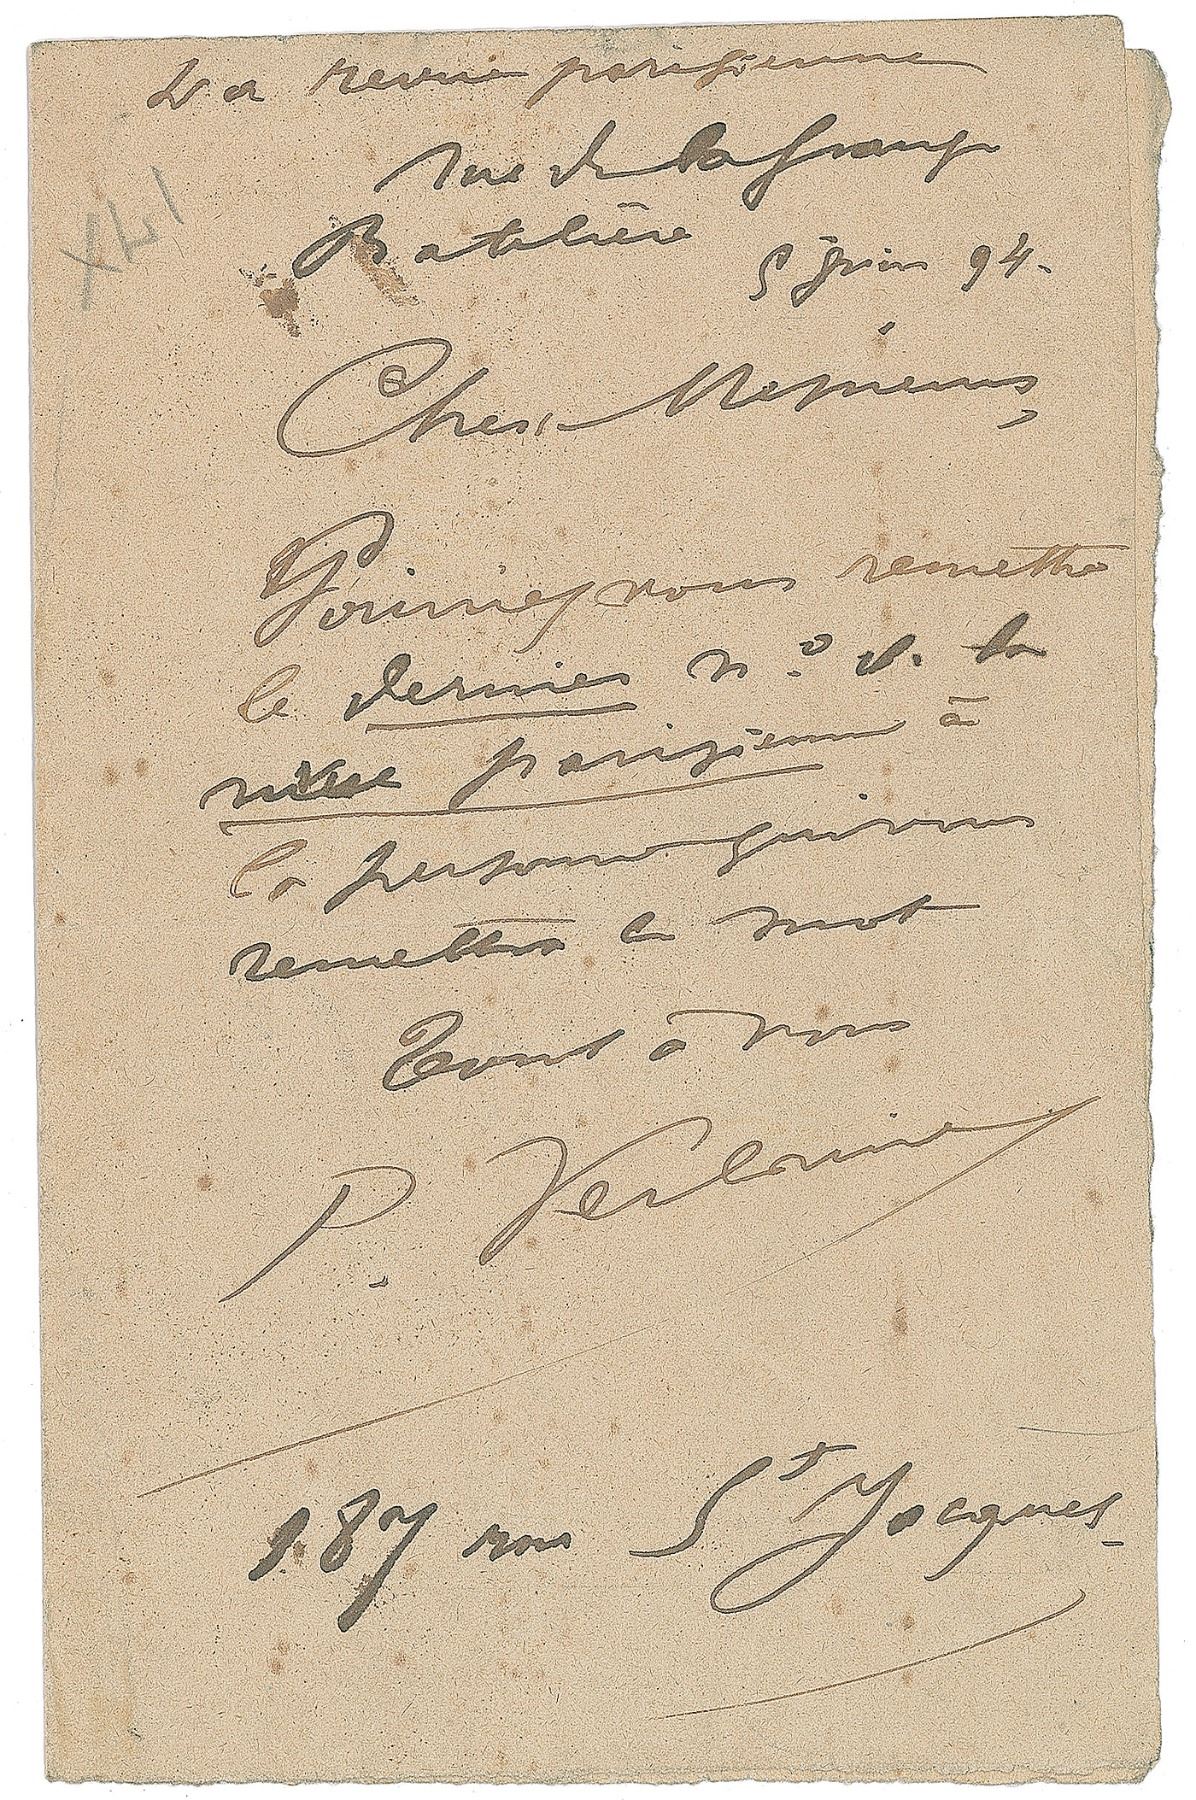 La revue parisienne
rue de la Grange
Batelière
5 juin 94.
XLI
Chers Messieurs,
Pourriez vous remettre
le dernier n.o de la
revue parisienne à
la personne qui vous
remettra ce mot
Tout à vous
P. Verlaine
187 rue St Jacques